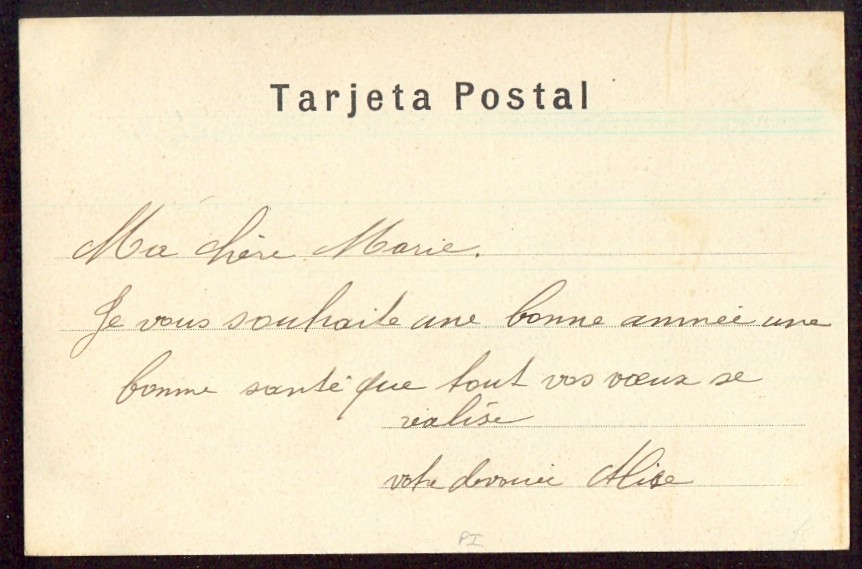 Tarjeta Postal
Ma chère Marie.
Je vous souhaite une bonne année une
bonne santé que tout vos vœux se
realise
votre devouée Alise
PI